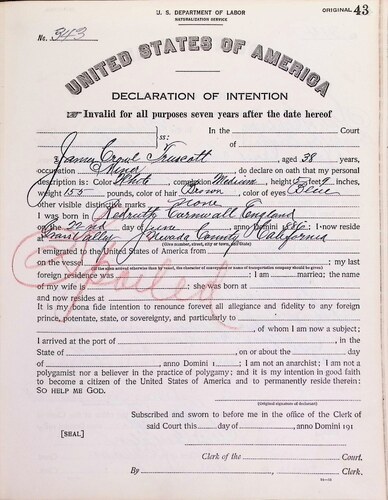 U. S. DEPARTMENT OF LABOR
NATURALIZATION SERVICE
ORIGINAL 43
No. 343
UNITED STATES OF AMERICA
DECLARATION OF INTENTION
Invalid for all purposes seven years after the date hereof
In the Court
ss:
of
I, James Truscott, aged 38 years,
occupation Miner, do declare on oath that my personal
description is: Color White, complexion Medium, height 5 feet 9 inches,
weight 155 pounds, color of hair Brown, color of eyes Blue
other visible distinctive marks None
I was born in Redruth Cornwall England
on the 22nd day of June, anno Domini 1; I now reside
at Grass Valley, Nevada County California
(Give number, street, city or town, and State)
I emigrated to the United States of America from
on the vessel; my last
(If the alien arrived otherwise than by vessel, the character of conveyance or name of transportation company should be given)
foreign residence was; I am married; the name
of my wife is; she was born at
and now resides at
Spoiled
It is my bona fide intention to renounce forever all allegiance and fidelity to any foreign
prince, potentate, state, or sovereignty, and particularly to
, of whom I am now a subject;
I arrived at the port of, in the
State of, on or about the day
of, anno Domini 1; I am not an anarchist; I am not a
polygamist nor a believer in the practice of polygamy; and it is my intention in good faith
to become a citizen of the United States of America and to permanently reside therein:
SO HELP ME GOD.
(Original signature of declarant)
Subscribed and sworn to before me in the office of the Clerk of
said Court this day of, anno Domini 191
[SEAL]
Clerk of the Court.
By, Clerk.